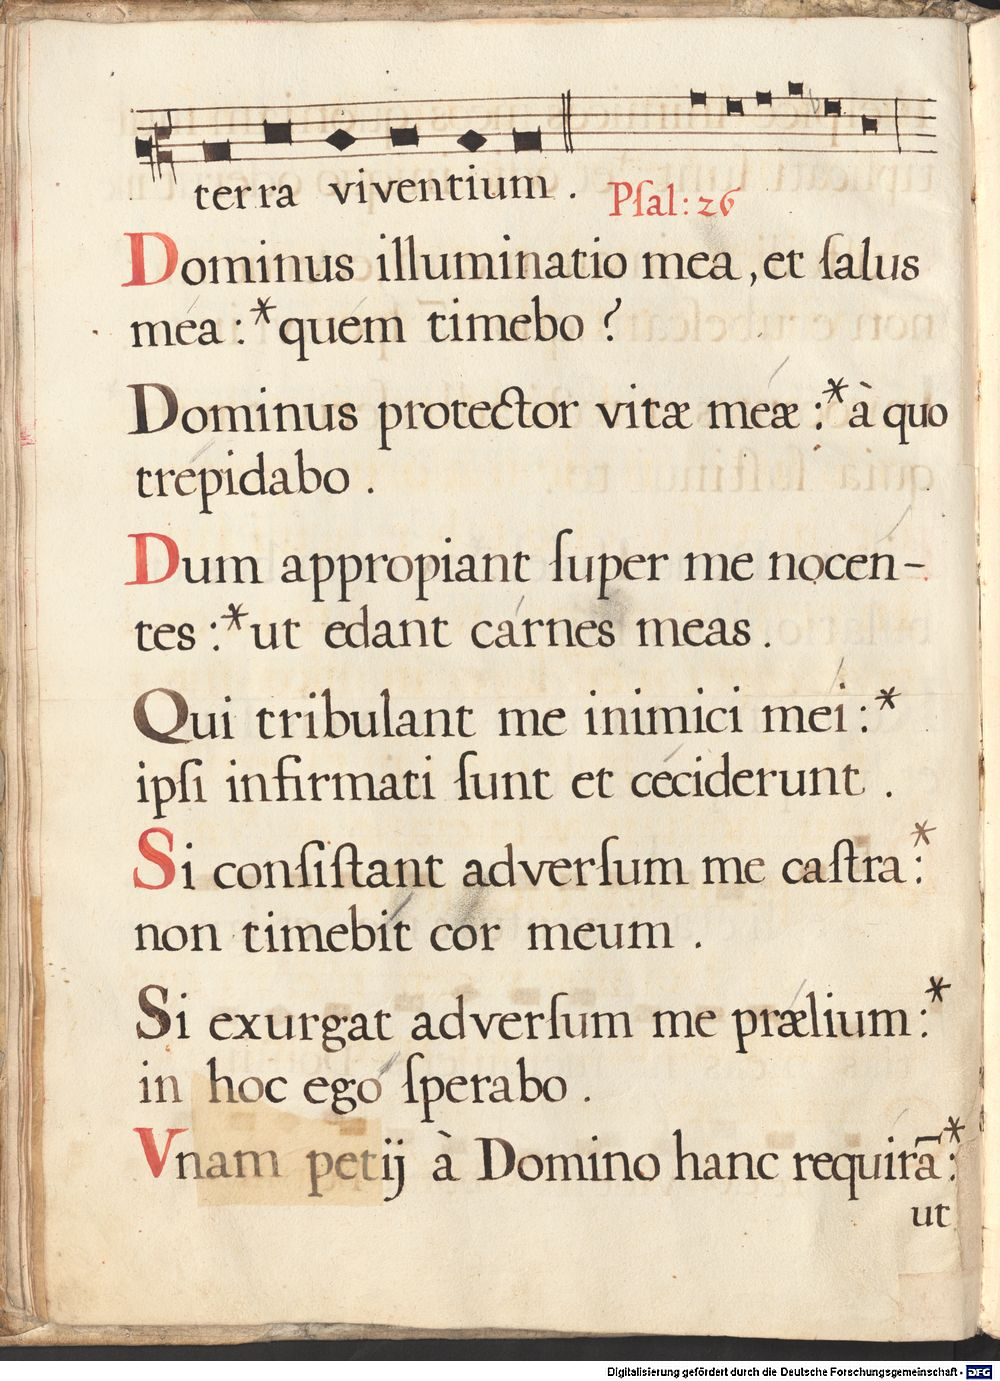 terra viventium . Pſal: 26
Dominus illuminatio mea, et ſalus
mea : * quem timebo ?
Dominus protector vitæ meæ : * à quo
trepidabo .
Dum appropiant ſuper me nocen-
tes : * ut edant carnes meas .
Qui tribulant me inimici mei : *
ipſi infirmati ſunt et ceciderunt .
Si conſiſtant adverſum me caſtra : *
non timebit cor meum .
Si exurgat adverſum me prælium : *
in hoc ego ſperabo .
Vnam petij à Domino hanc requirā : *
ut
Digitalisierung gefördert durch die Deutsche Forschungsgemeinschaft - DFG